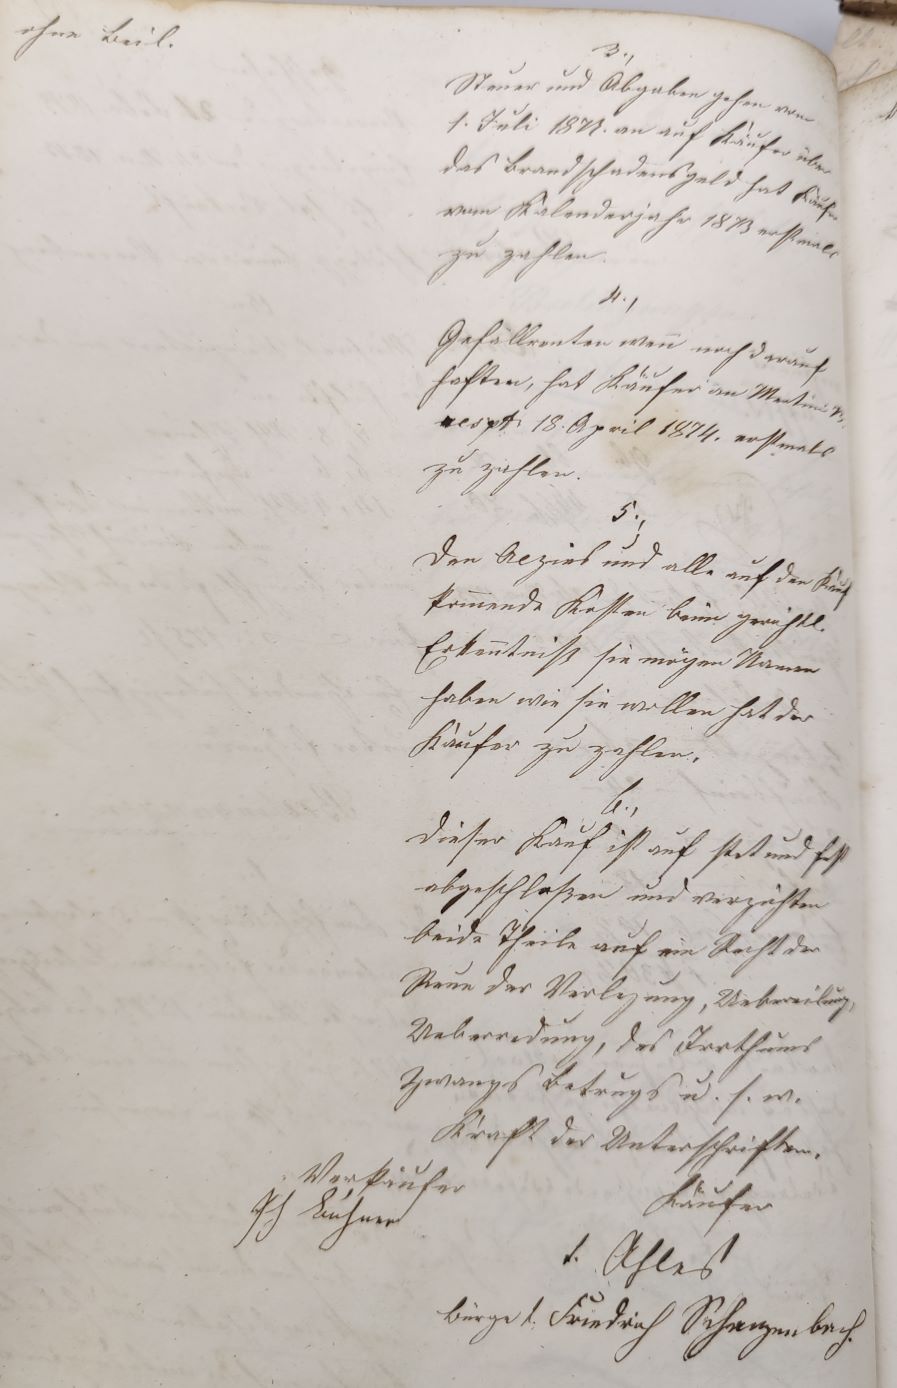 ohne Beil.
3.,
Steuer und Abgaben gehen vom
1. Juli 1873. an auf Käufer über
das Brandschadensgeld hat Käufer
vom Kalenderjahr 1873 erstmals
zu zahlen.
4.,
Gefällrenten wenn noch darauf
haften, hat Käufer an Martini
respt. 18. April 1874. erstmals
zu zahlen.
5.,
Den Aczies und alle auf den Kauf
kommende Kosten beim gerichtl.
Erkenntniß sie mögen Namen
haben wie sie wollen hat der
Käufer zu zahlen.
6.,
Dieser Kauf ist auf stet und fest
abgeschloßen und verzichten
beide Theile auf ein Recht der
Reue der Verlezung, Uebereilung,
Ueberredung, des Irrthums
Zwangs Betrugs u. s. w.
Kraft der Unterschriften.
Verkäufer
Käufer
Bühner
t. Ahles
Bürge t. Friedrich Schanzenbach.